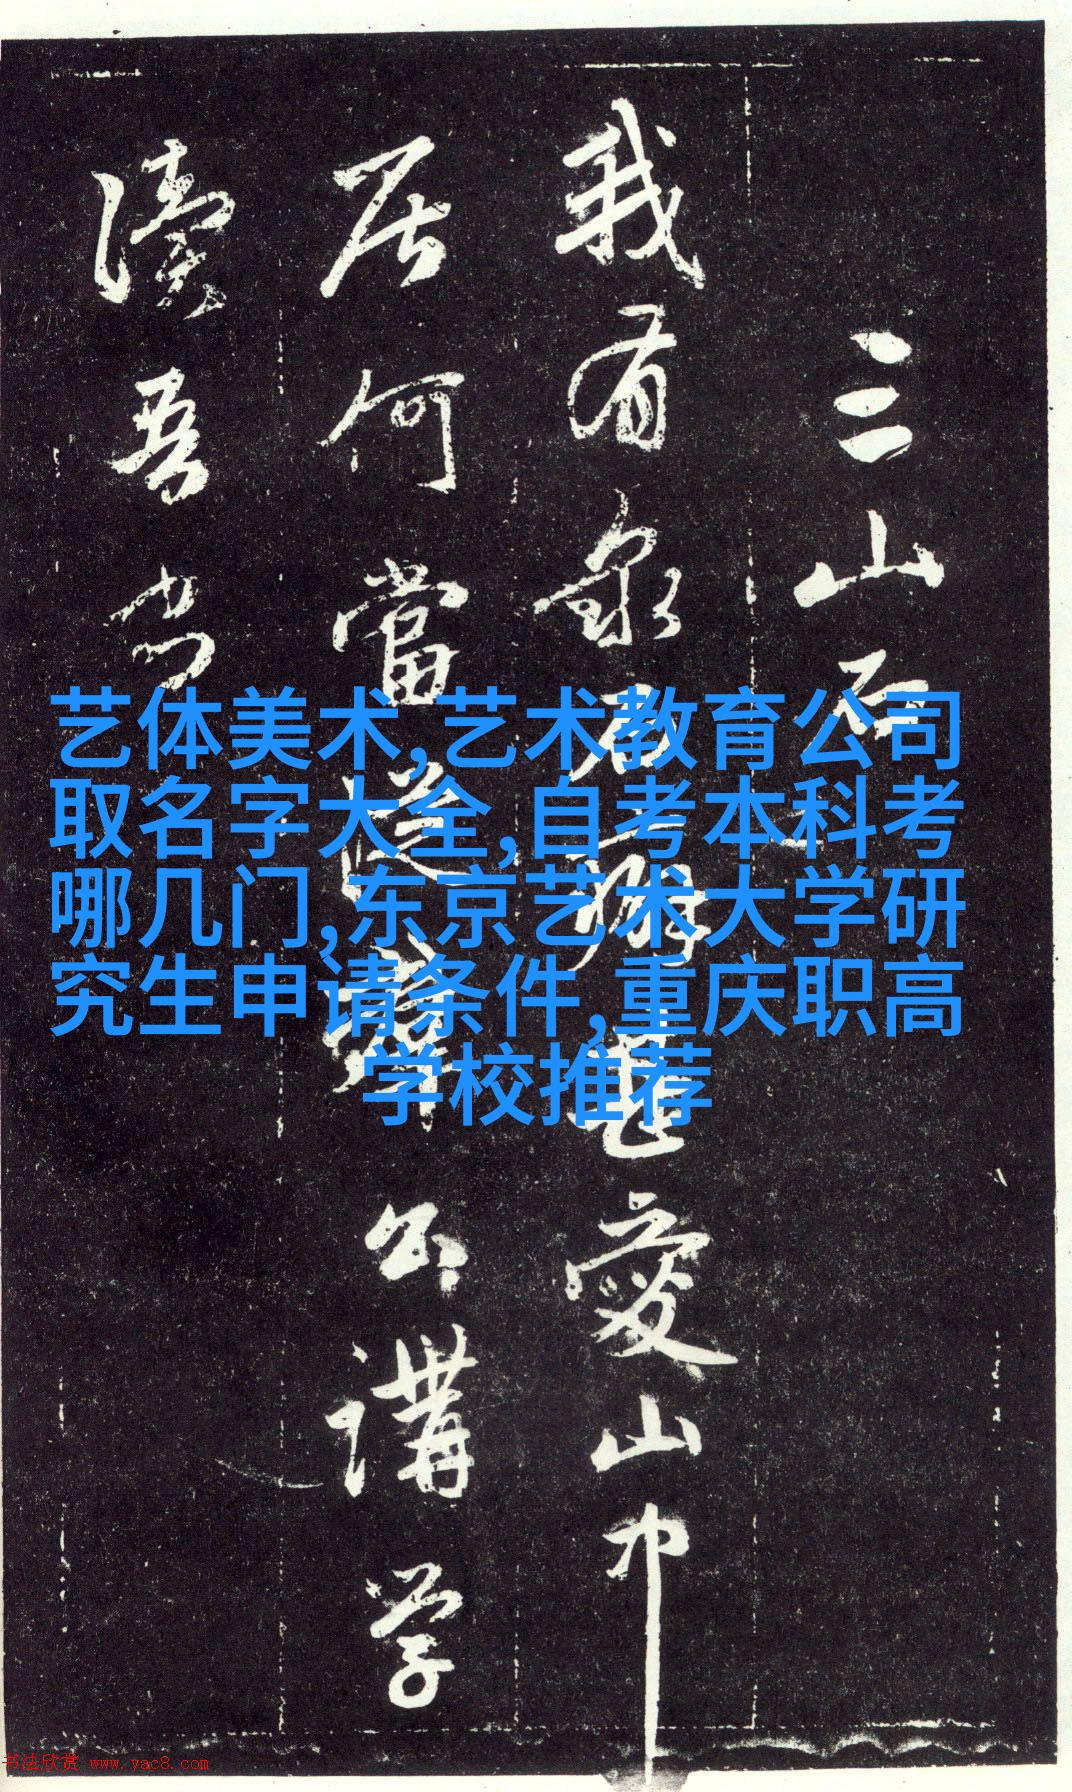 三山石
我有泉石癖甚愛山中
居何當從舜公講学
讀吾書
艺体美术,艺术教育公司
取名字大全,自考本科考
哪几门,东京艺术大学研
究生申请条件,重庆职高
学校推荐
书法欣赏 www.yac8.com